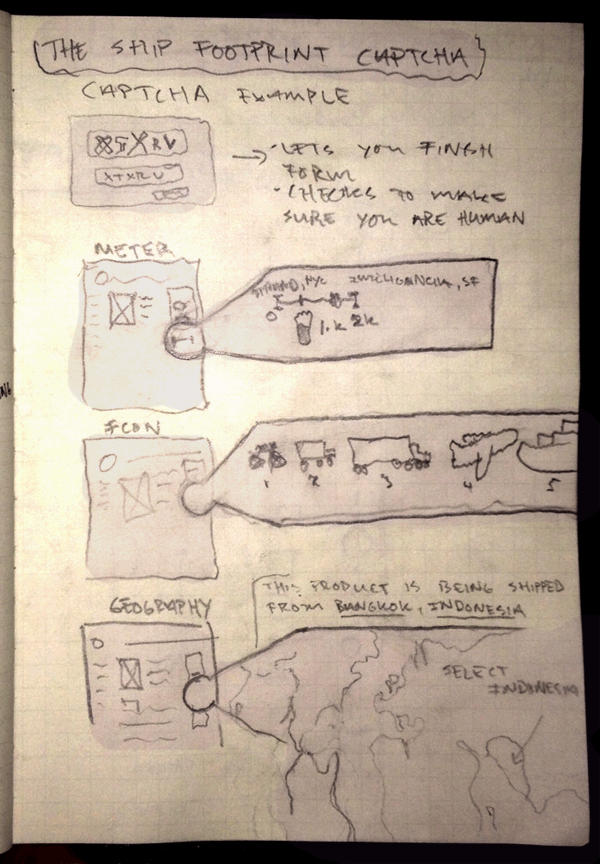 THE SHIP FOOTPRINT CAPTCHA
CAPTCHA EXAMPLE
XTXRV
• LETS YOU FINISH
FORM
• CHECKS TO MAKE
SURE YOU ARE HUMAN
METER
, NYC
, SF
0
1.k 2k
ICON
1 2 3 4 5
GEOGRAPHY
THIS PRODUCT IS BEING SHIPPED
FROM BANGKOK, INDONESIA
SELECT
INDONESIA